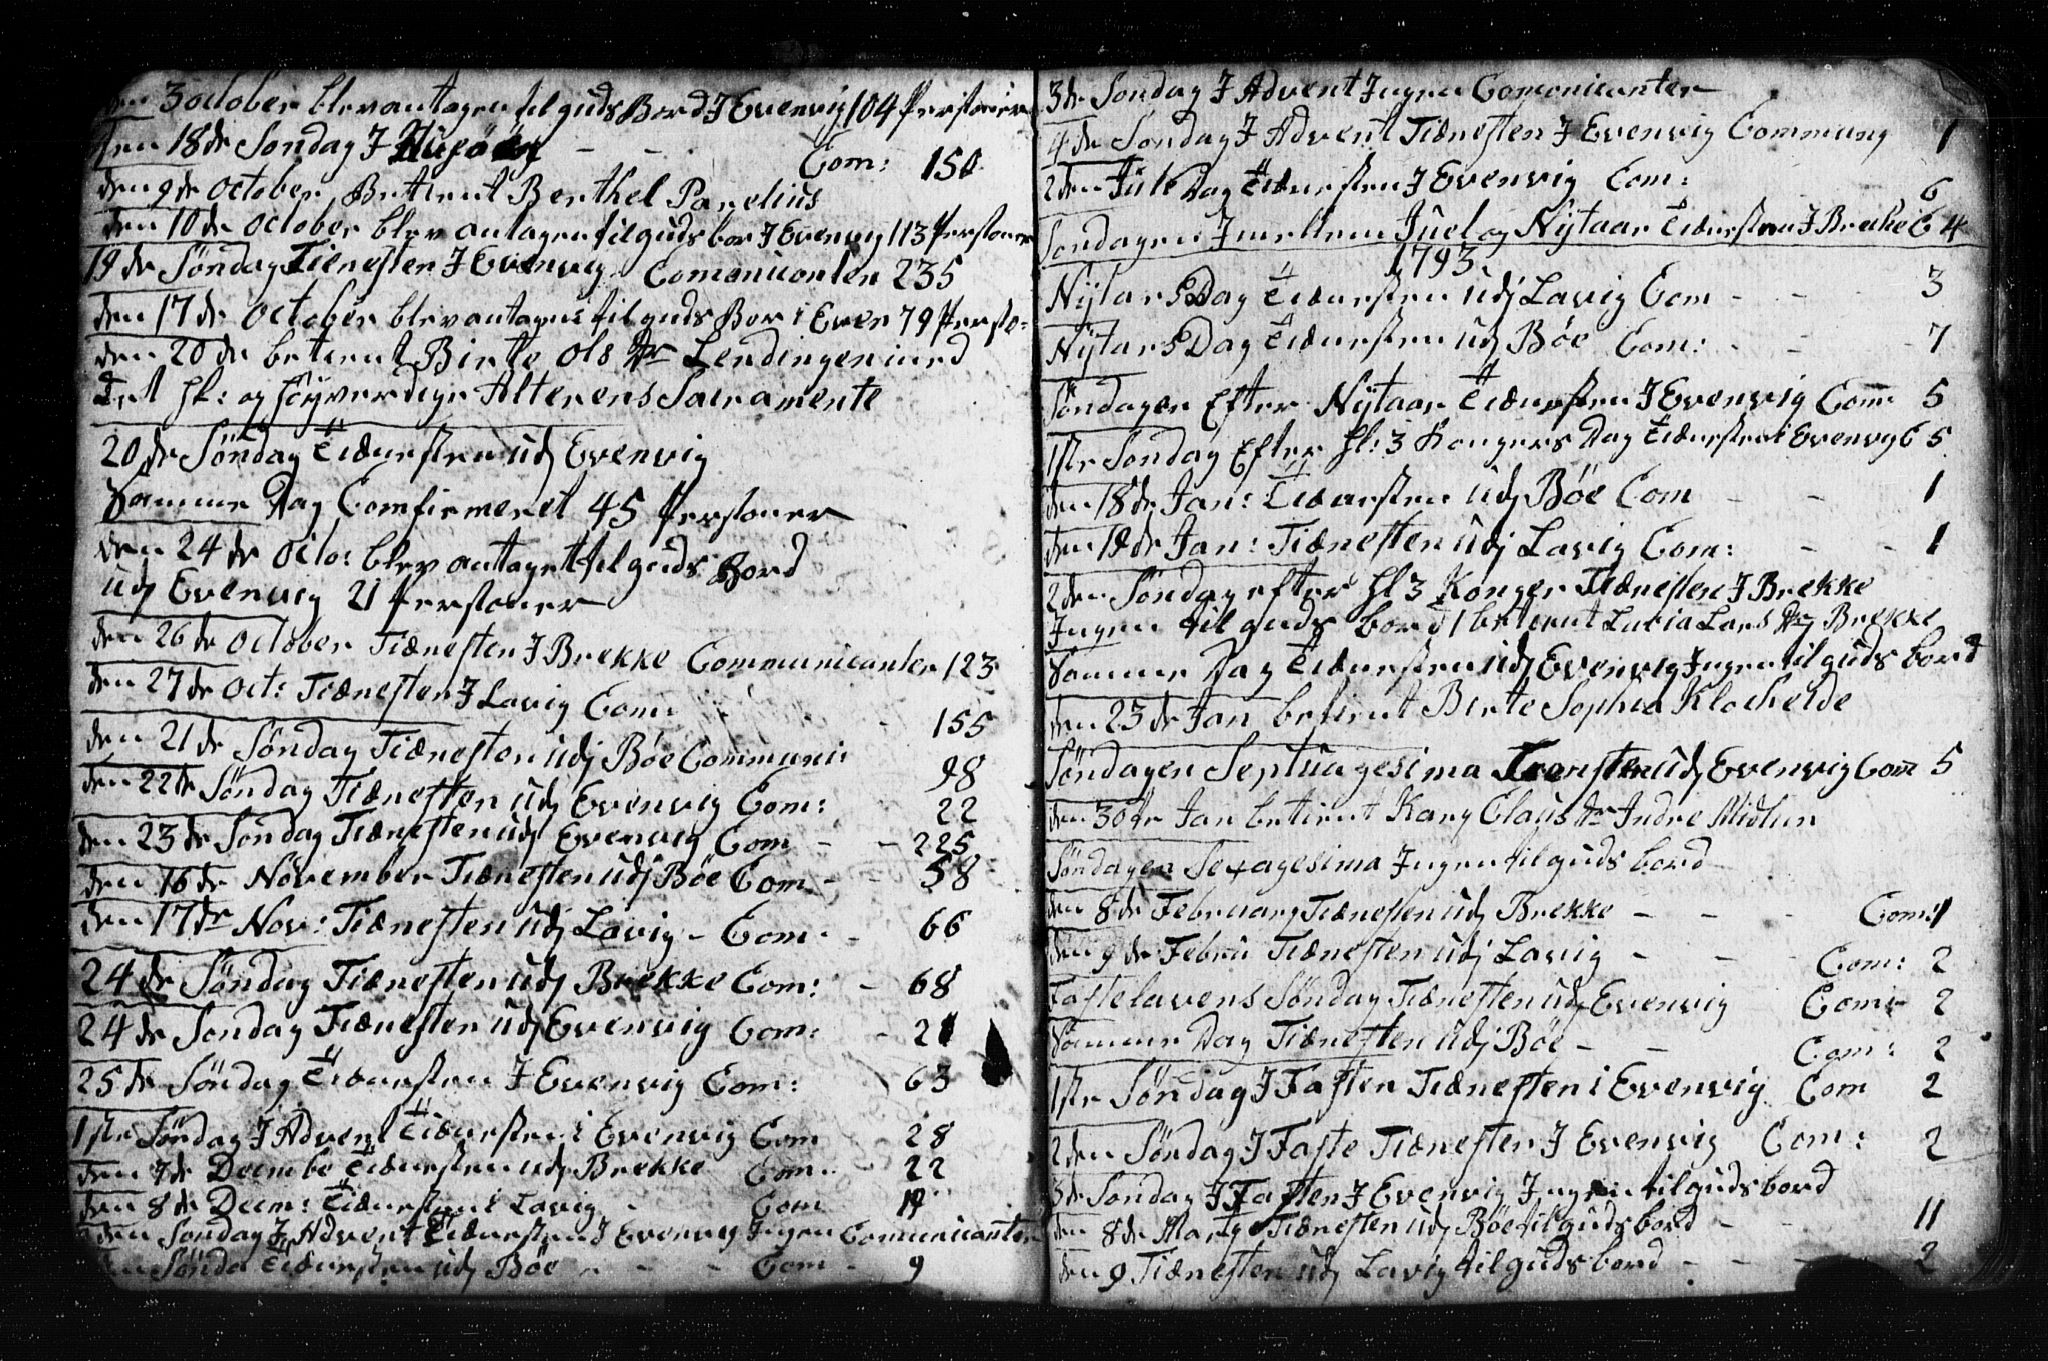 den 3 october blev antagen til guds Bord J Evenvig 104 Personer
den 18de Søndag J Husøøy - - Com: 150
den 9de October Betient Berthel Parelius
den 10de october blev antagen til guds bor J Evenvig 113 Personer
19de Søndag Tienesten J Evenvig Comonicanten 235
den 17de October blev antagen til guds Bor i Even 79 Perso-
den 20de betient Birte Ols dr Lendingen med
det hl: og høyverdige Alterens Sacramente
20de Søndag Tienesten udj Evenvig
Samme Dag Comfirmeret 45 Personer
den 24de octo: blev antaget til guds Bord
udj Evenvig 21 Personer
den 26de October Tienesten J Brekke Communicanter 123
den 27de Oct: Tienesten J Lavig Com: 155
den 21de Søndag Tienesten udj Bøe Communi: 98
den 22de Søndag Tienesten udj Evenvig Com: - 22
den 23de Søndag Tienesten udj Evenvig Com - - 225
den 16de November Tienesten udj Bøe Com - - 58
den 17de Nov: Tienesten udj Lavig - Com - 66
24de Søndag Tienesten udj Brekke Com: - 68
24de Søndag Tienesten udj Evenvig Com: - 21
25de Søndag Tienesten J Evenvig Com: 63
1ste Søndag J Advent Tienesten i Evenvig Com 28
den 7de Decembe Tienesten udj Brekke Com - 22
den 8de Decem: Tienesten i Lavig - Com
2den Søndag J Advent Tienesten J Evenvig Jngen Comunicanter
Sønda Tienesten udj Bøe - - - Com - 9
3de Søndag J Advent Jngen Comonicanter
4de Søndag J Advent Tienesten J Evenvig Commung 1
2den Jule Dag Tienesten J Evenvig Com: 6
Søndagen Jmellem Juel og Nytaar Tienesten J Brekke C 4
1793
Nytars Dag Tienesten udj Lavig Com - - - 3
Nytars Dag Tienesten udj Bøe Com: - - - 7
Søndagen Efter Nytaar Tienesten J Evenvig Com 5
1ste Søndag Efter hl: 3 Kongers Dag Tienesten i Evenvig C 5
den 18de Jan: Tienesten udj Bøe Com - - 1
den 19de Jan: Tienesten udj Lavig Com: - - 1
2den Søndag efter hl 3 Konger Tienesten J Brekke
Jngen til guds bord 1 betient Lucia Lars dr Brekke
Samme Dag Tienesten udj Evenvig Jngen til guds bord
den 23de Jan betient Birte Sophia Klocheide
Søndagen Septuagesima Tienesten udj Evenvig Com 5
den 30te Jan betient Kary Claus dr Jndre Midtun
Søndagen Sexagesima Jngen til guds bord
den 8de February Tienesten udj Brekke - - - Com: 1
den 9de Febru Tienesten udj Lavig - - Com: 2
Fastelavens Søndag Tienesten udj Evenvig Com: 2
Samme Dag Tienesten udj Bøe - - Com: 2
1ste Søndag J Fasten Tienesten i Evenvig Com 2
2den Søndag J Faste Tienesten J Evenvig Com: 2
3de Søndag J Fasten J Evenvig Jngen til guds bord
den 8de Marty Tienesten udj Bøe til guds bord - - 11
den 9 Tienesten udj Lavig til guds bord - - - 2